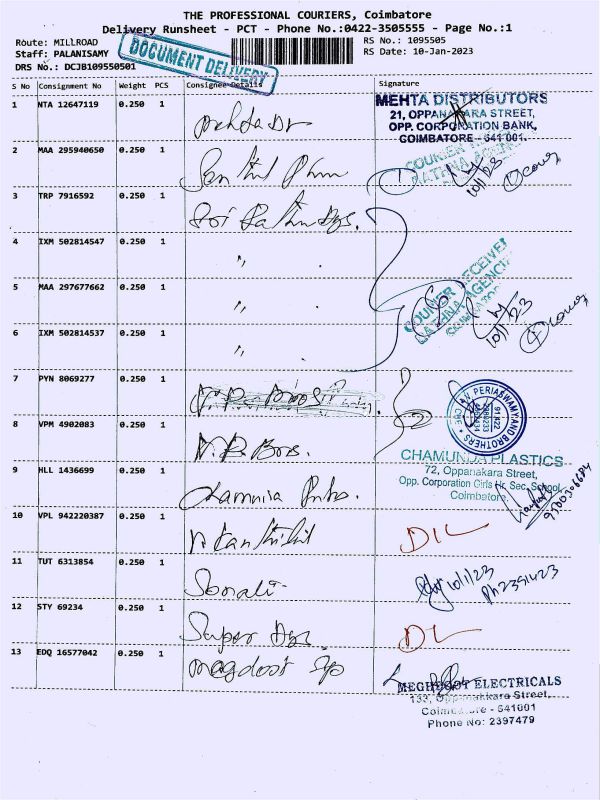 THE PROFESSIONAL COURIERS, Coimbatore
Delivery Runsheet - PCT - Phone No.:0422-3505555 - Page No.:1
Route: MILLROAD
RS No.: 1095505
Staff: PALANISAMY
RS Date: 10-Jan-2023
DRS No.: DCJB109550501
DOCUMENT DELIVERY
S No Consignment No Weight PCS Consignee Details Signature
1 NTA 12647119 0.250 1 Mehta Dr
MEHTA DISTRIBUTORS
21, OPPANAKARA STREET,
OPP. CORPORATION BANK,
COIMBATORE - 641 001.
2 MAA 295940650 0.250 1
COURIER
RATHNA AGENC
10/1/23
3 TRP 7916592 0.250 1 Sri
4 IXM 502814547 0.250 1 " .
5 MAA 297677662 0.250 1 " .
COURIER RECEIVED
RATHNA AGENCI
COIMBATOR
10/1/23
6 IXM 502814537 0.250 1 "
7 PYN 8069277 0.250 1
PERIASWAMY AND BROTHERS
CBE
8 VPM 4902083 0.250 1 Bros.
9 HLL 1436699 0.250 1
CHAMUNDA PLASTICS
72, Oppanakara Street,
Opp. Corporation Girls Hr. Sec. School
Coimbatore.
10 VPL 942220387 0.250 1
DL
11 TUT 6313854 0.250 1 Sonali
10/1/23
Ph 2351423
12 STY 69234 0.250 1 Super
DL
13 EDQ 16577042 0.250 1 Megdoot
MEGHDOOT ELECTRICALS
133, Oppanakkara Street,
Coimbatore - 641001
Phone No: 2397479